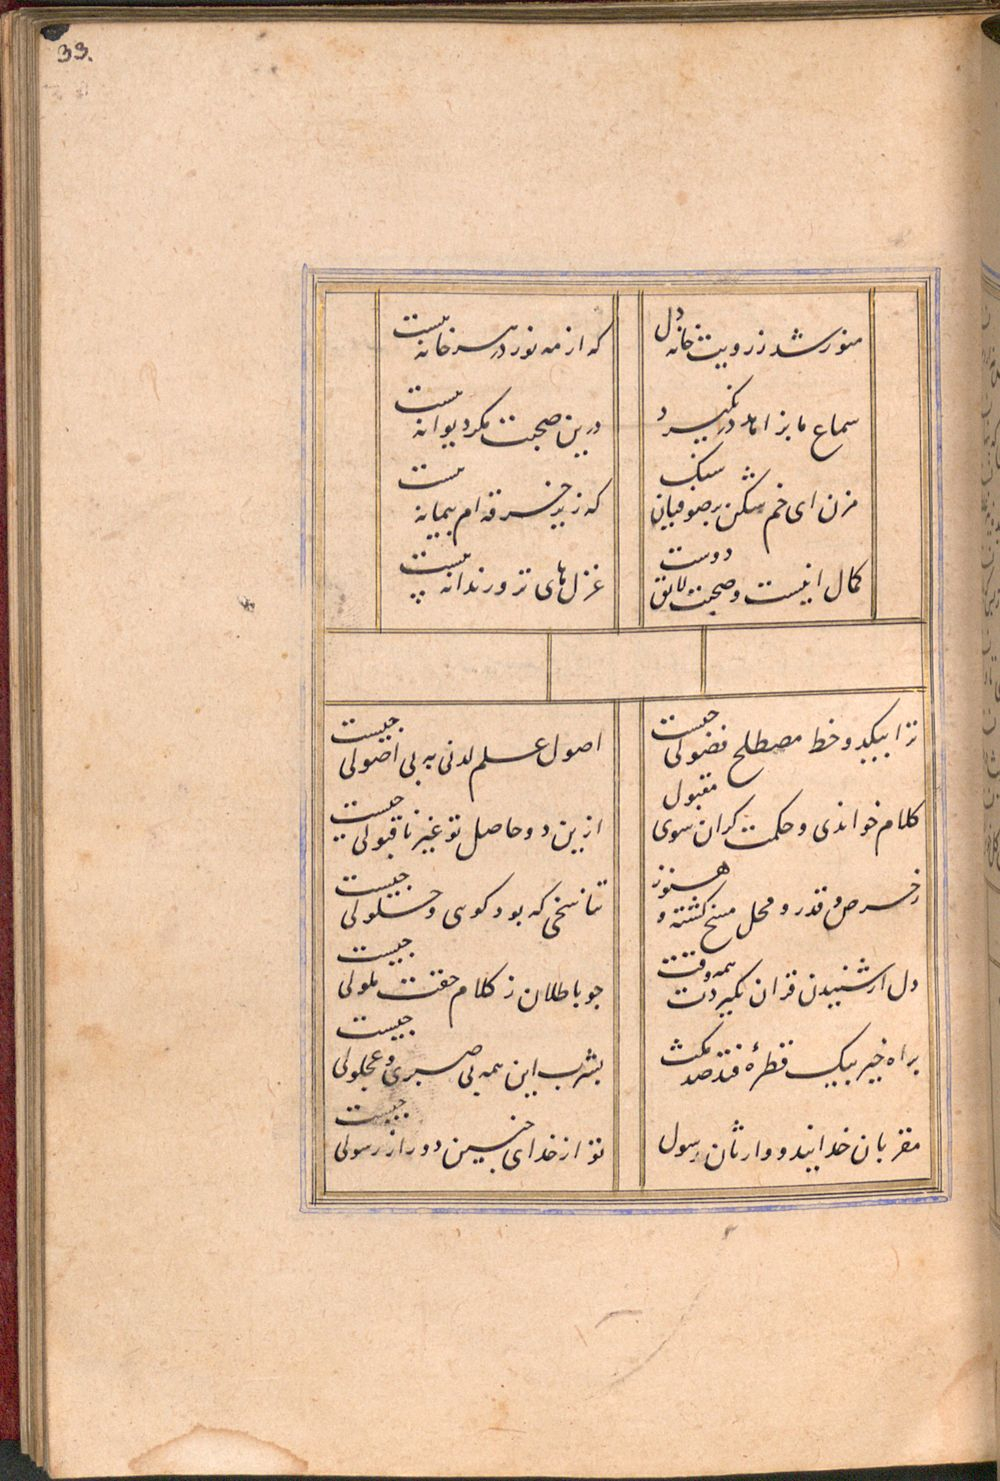 33.
منور شد ز رویت خانه دل
که از مه نور در هر خانه ییست
سماع ما بزاهد در نگیرد
درین صحبت مگر دیوانه ییست
مزن ای خم شکن بر صوفیان سنگ
که زیر خرقه ام پیمانه ییست
کمال انیست و صحبت لایق دوست
غزل های تر و رندانه ییست
ترا بیکد و خط مصطلح فضولی چیست
اصول علم لدنی به بی اصولی چیست
کلام خواندی و حکمت کران سوی مقبول
ازین دو حاصل تو غیر نا قبولی چیست
ز حرص و قدر و محل مسخ کشته و هنوز
تناسخی که بود کوی و حلولی چیست
دل از شنیدن قران بگیردت همه وقت
چو باطلان ز کلام حقت ملولی چیست
براه خیر بیک قطره فتد صد مکث
بشرب این همه بی صبری و عجولی چیست
مقربان خدایند و وارثان رسول
تو از خدای چنین دور از رسولی چیست